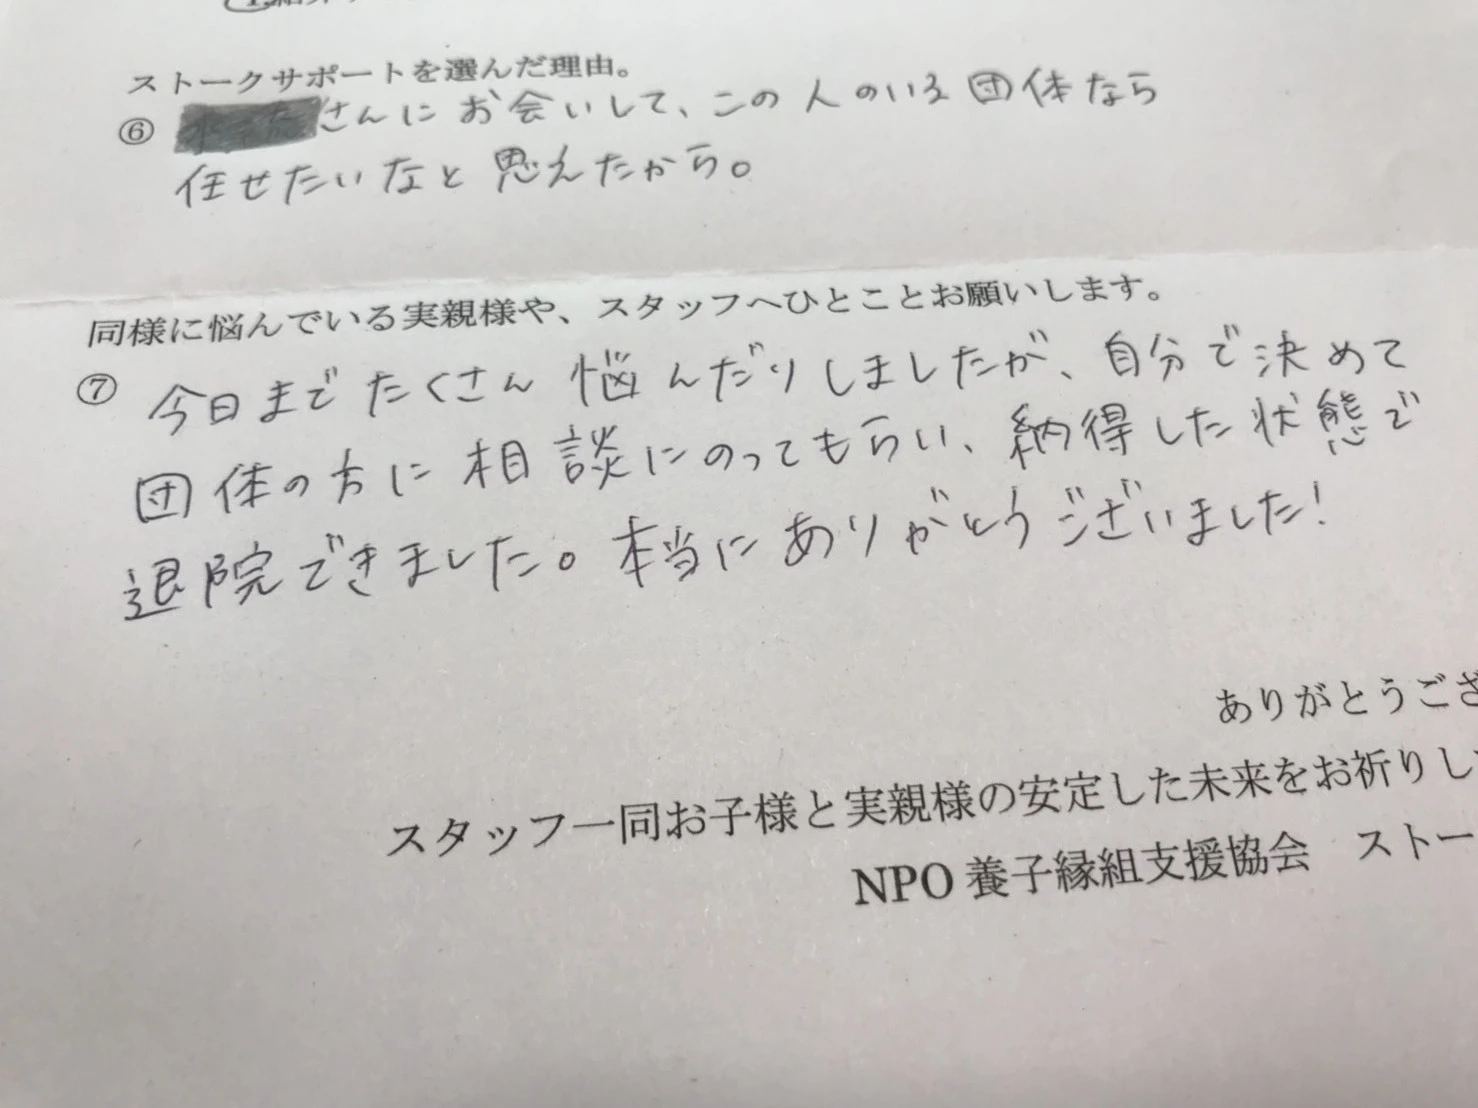 ストークサポートを選んだ理由。
⑥ さんにお会いして、この人のいる団体なら
任せたいなと思えたから。
同様に悩んでいる実親様や、スタッフへひとことお願いします。
⑦ 今日までたくさん悩んだりしましたが、自分で決めて
団体の方に相談にのってもらい、納得した状態で
退院できました。本当にありがとうございました!
ありがとうござ
スタッフ一同お子様と実親様の安定した未来をお祈りし
NPO 養子縁組支援協会 ストー